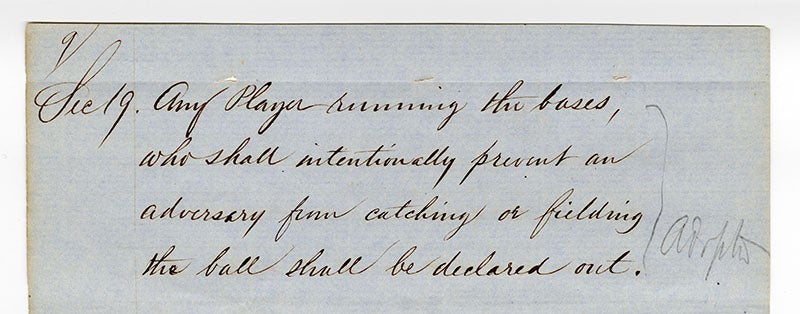 9
Sec 19. Any Player running the bases,
who shall intentionally prevent an
adversary from catching or fielding
the ball shall be declared out.
Adopted